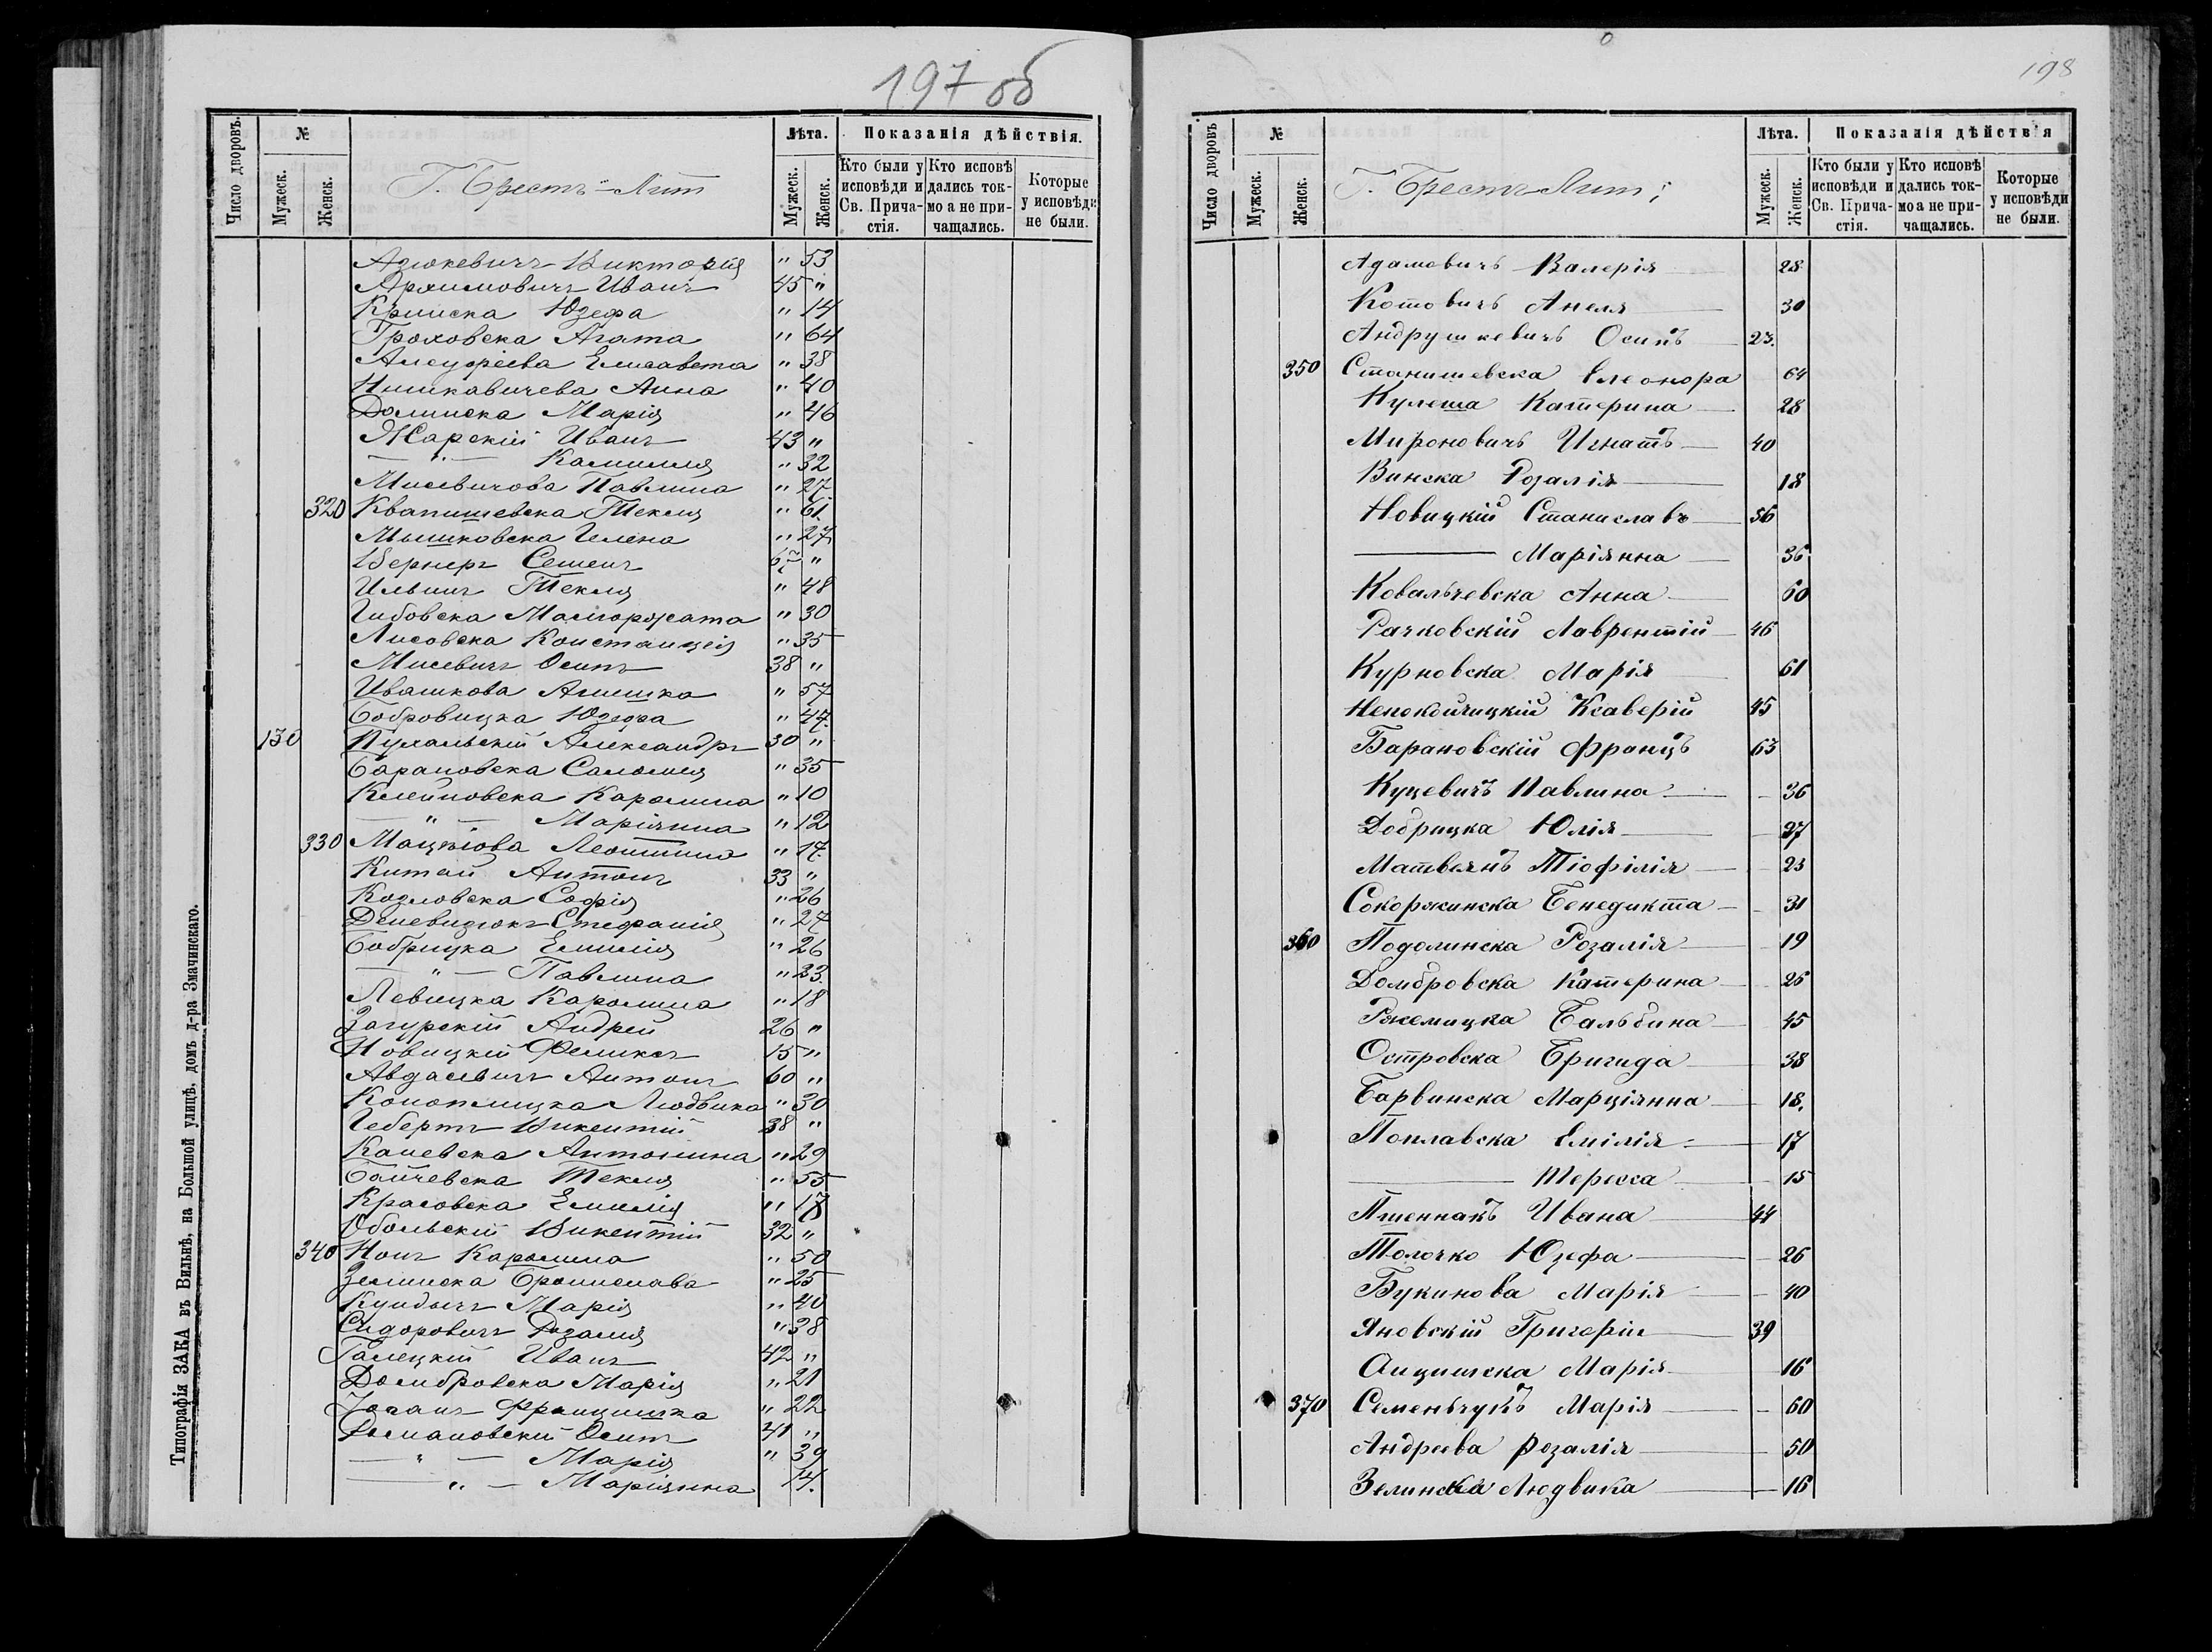 197 об
Число дворовъ.
№
Мужеск.
Женск.
Г. Брестъ-Лит
Лѣта.
Мужеск.
Женск.
Показанія дѣйствія.
Кто были у исповѣди и Св. Прича-стія.
Кто исповѣ дались ток-мо а не при-чащались.
Которые у исповѣди не были.
Адюкевичъ Викторія " 53
Архимовичъ Иванъ 45 "
Юзефа " 14
Гроховска Агата " 64
Елисавета " 38
Анна " 40
Долинска Марія " 46
Жарскій Иванъ 43 "
— " — Камилля " 32
Мисевичова Павлина " 27
320 Квапишевска Текля " 61.
Мышковска Гелена " 27
Вернеръ Семенъ 67 "
Ильинъ Текля " 48
Гибовска Малгоржата " 30
Лисовска Констанція " 35
Мисевичъ Осипъ 38 "
Ивашкова Агнишка " 57
Бобровицка Юзефа " 47
130 Пухальскій Александръ 30 "
Барановска Саломея " 35
Клейновска Каролина " 10
— " — Маріянна " 12
330 " 17.
Китай Антонъ 33 "
Козловска Софія " 26
Стефанія " 27
Бобрицка Емилія " 26
— " — Павлина " 23.
Левицка Каролина " 18
Загурскій Андрей 26 "
Новицкій Феликсъ 15 "
Авдалевичъ Антонъ 60 "
Коноплицка Людвика " 30
Гебертъ Викентій 38 "
Каневска Антонина " 29
Бончевска Текля " 55
Красовска Емилія " 17
Обольскій Викентій 32 "
340 Нонъ Каролина " 50
Зелинска Бронислава " 25
Кундычъ Марія " 40
Сидоровичъ Розалія " 38
Галецкій Иванъ 42 "
Домбровска Марія " 21
Іоганъ Францишка " 22
Романовскій Осипъ 41 "
— " — Марія " 39
— " — Маріянна 14.
Типографія ЗАКА въ Вильнѣ, на Большой улицѣ, домъ д-ра Змачинскаго.
198
Число дворовъ
№
Мужеск.
Женск.
Г. Брестъ Лит:
Лѣта.
Мужеск.
Женск.
Показанія дѣйствія
Кто были у исповѣди и Св. Прича-стія.
Кто исповѣ дались ток-мо а не при-чащались.
Которые у исповѣди не были.
Адамовичъ Валерія 28
Котовичъ Анеля 30
Андрушкевичъ Осипъ 23.
350 Станишевска Елеонора 64
Кулеша Катерина 28
Мироновичъ Игнатъ 40
Винска Розалія 18
Новицкій Станиславъ 56
— Маріянна 36
Ковальчевска Анна 60
Рачковскій Лаврентій 46
Курновска Марія 61
Непокойчицкій Ксаверій 45
Барановскій Францъ 63
Куцевичъ Павлина 36
Добрицка Юлія 27
Матвеянъ Тіофілія 23
Сокоржинска Бенедикта 31
360 Подолинска Розалія 19
Домбровска Катерина 26
Ржемицка Бальбина 45
Островска Бригида 38
Барвинска Марціянна 18.
Поплавска Емілія 17
— Тересса 15
Пшеннакъ Ивана 44
Толочко Юзефа 26
Букинова Марія 40
Яновскій Григорій 39
Марія 16
370 Семеньчукъ Марія 60
Андреева Розалія 50
Зелинска Людвика 16